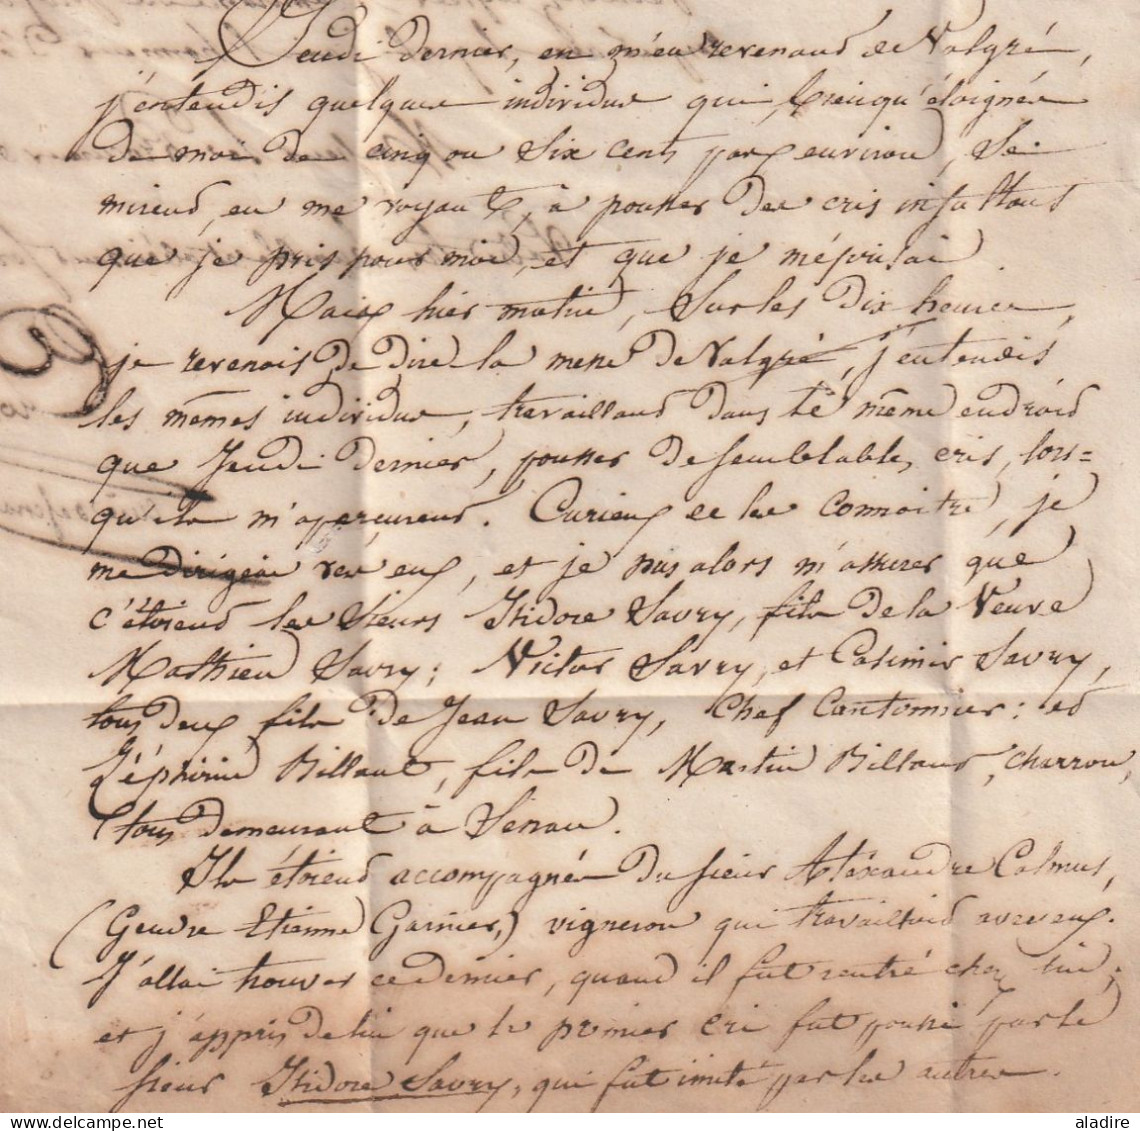 Jeudi dernier, en m'en revenand de Valgré,
j'entendis quelques individus qui, quoiqu'éloignés
de moi de cinq ou six cents pas environ, se
mirend, en me voyant, à pousser des cris insultans
que je pris pour moi, et que je méprisai
Mais hier matin, sur les dix heures,
je revenais de dire la messe de Valgré, j'entendis
les mêmes individus, travailland dans le même endroid
que Jeudi dernier, pousser de semblables cris, lors=
qu'ils m'apercurend. Curieux de les connaitre, je
me dirigeai vers eux, et je pus alors m'assurer que
c'étoiend les sieurs Isidore Savry, fils de la Veuve
Mathieu Savry; Victor Savry, et Casimir Savry,
tous deux fils de Jean Savry, Chef Cantonnier: ed
Zéphirin Billaut, fils de Martin Billaut, charron,
tous demeurant à Senan.
Ils étoiend accompagnés du sieur Aléxandre Calmus,
(Gendre Etienne Garnier,) vigneron qui travailloid avec eux.
J'allai trouver ce dernier, quand il fut rentré chez lui;
et j'appris de lui que le premier cri fut poussé par le
sieur Isidore Savry, qui fut imité par les autres.
aladire